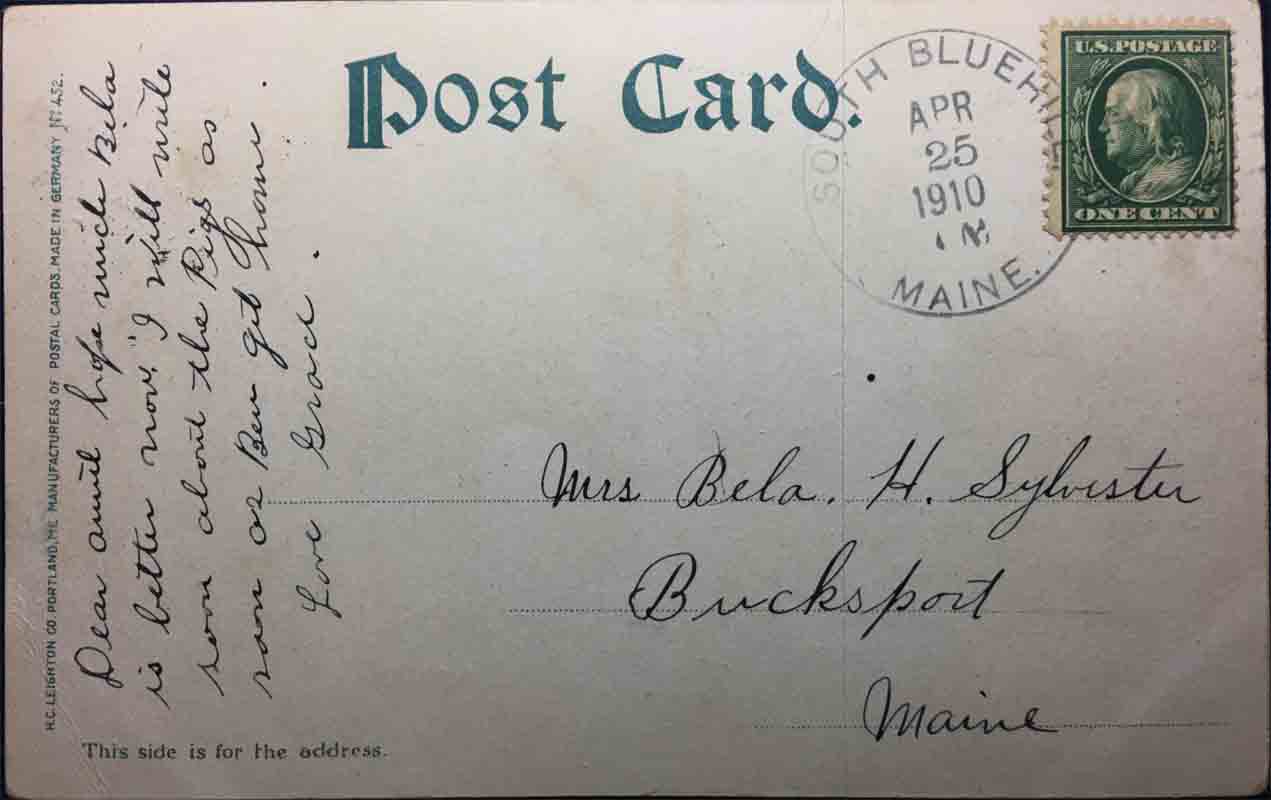 Post Card.
SOUTH BLUEHILL
APR
25
1910
M
MAINE.
U.S. POSTAGE
ONE CENT
H.C. LEIGHTON CO. PORTLAND, ME. MANUFACTURERS OF POSTAL CARDS. MADE IN GERMANY Nº 452.
Dear aunt hope uncle Bela
is better now. I will write
soon about the Pigs as
soon as Ben get home.
Love Grace.
Mrs Bela. H. Sylvester
Bucksport
Maine
This side is for the address.